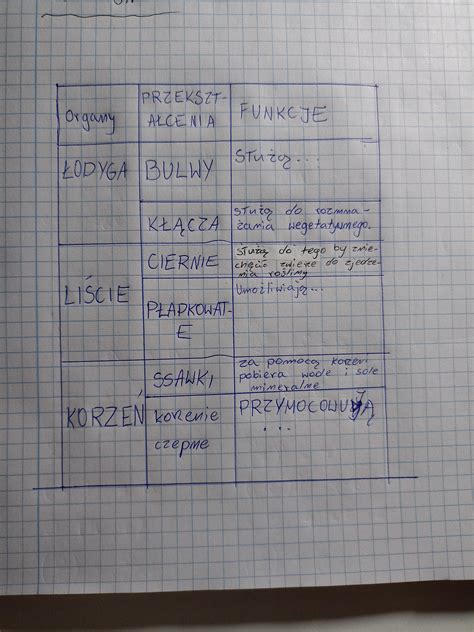 Organy
PRZEKSZT-
AŁCENIA
FUNKCJE
ŁODYGA
BULWY
Służą...
KŁĄCZA
Służą do rozmna-
żania wegetatywnego.
LIŚCIE
CIERNIE
Służą do tego by znie-
chęcić zwierze do zjedze-
nia rośliny
PŁAPKOWAT-
E
Umożliwiają...
KORZEŃ
SSAWKI
za pomocą korzeni
pobiera wode i sole
mineralne
korzenie
czepme
PRZYMOCOWUJĄ
...